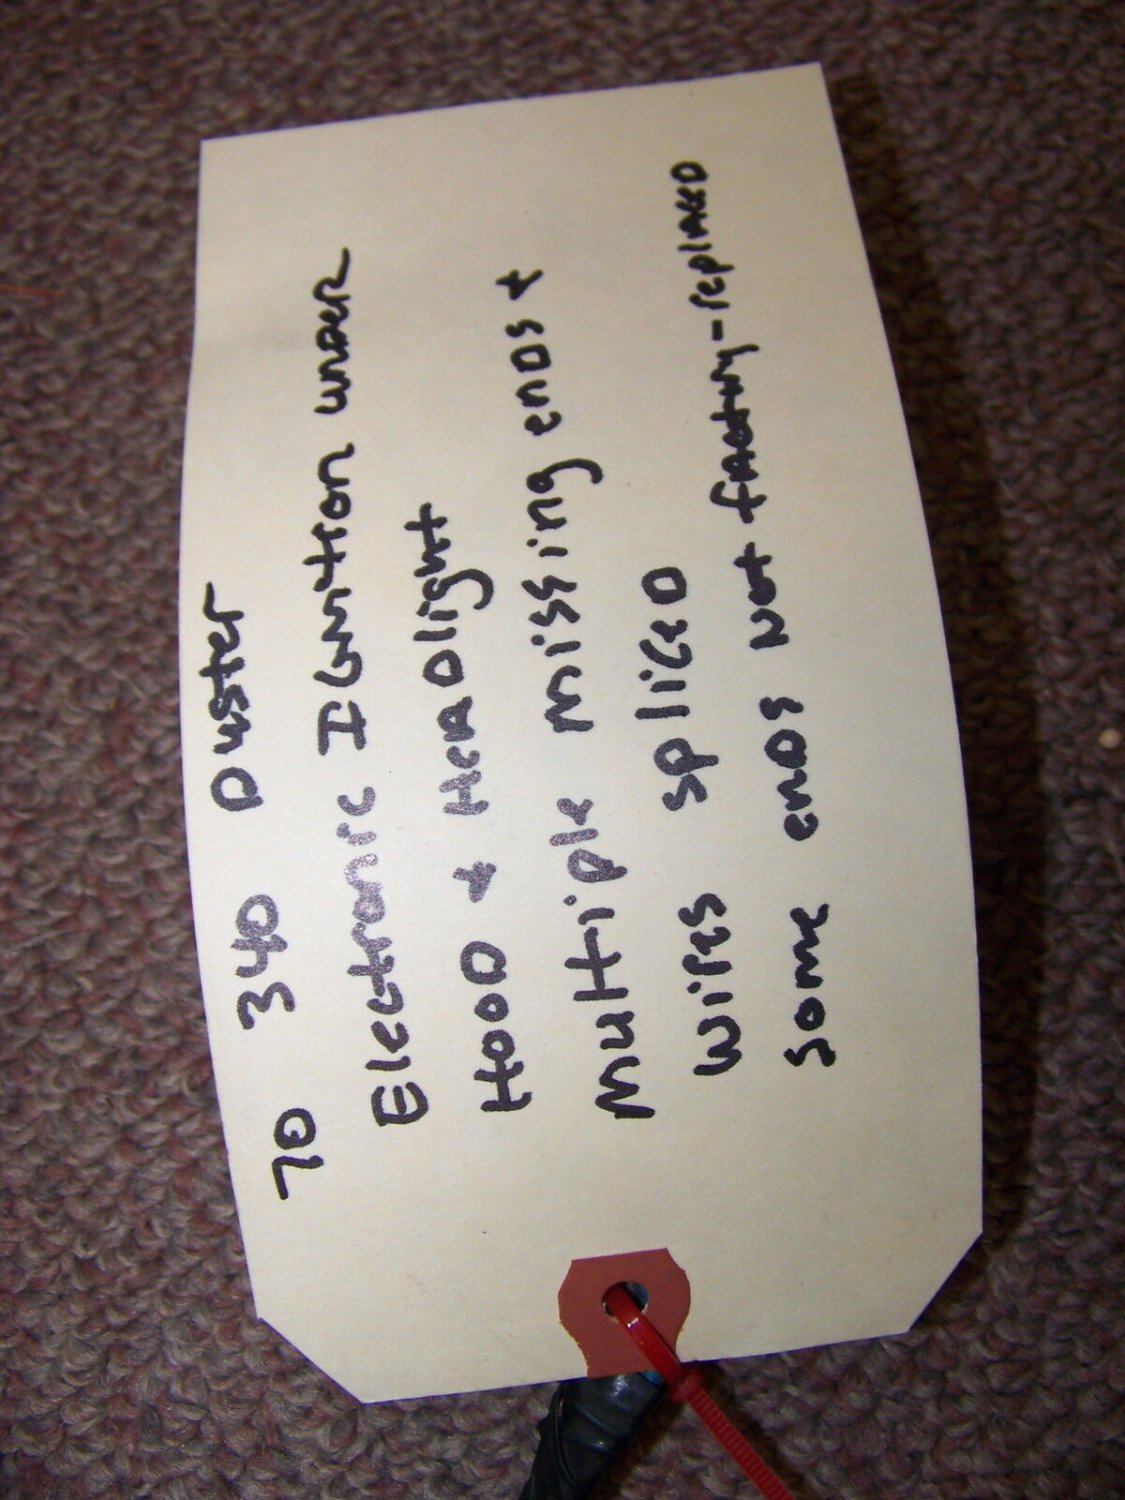 70 340 Duster
Electronic Ignition under
Hood + Headlight
multiple missing ends +
wires spliced
some ends not factory-replaced